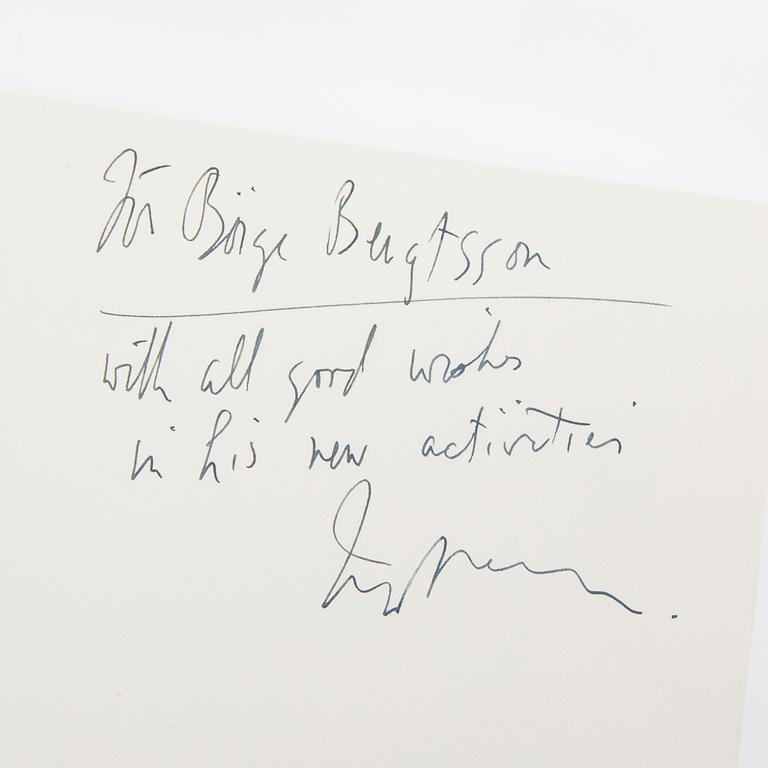 För Börge Bengtsson
with all good wishes
in his new activities